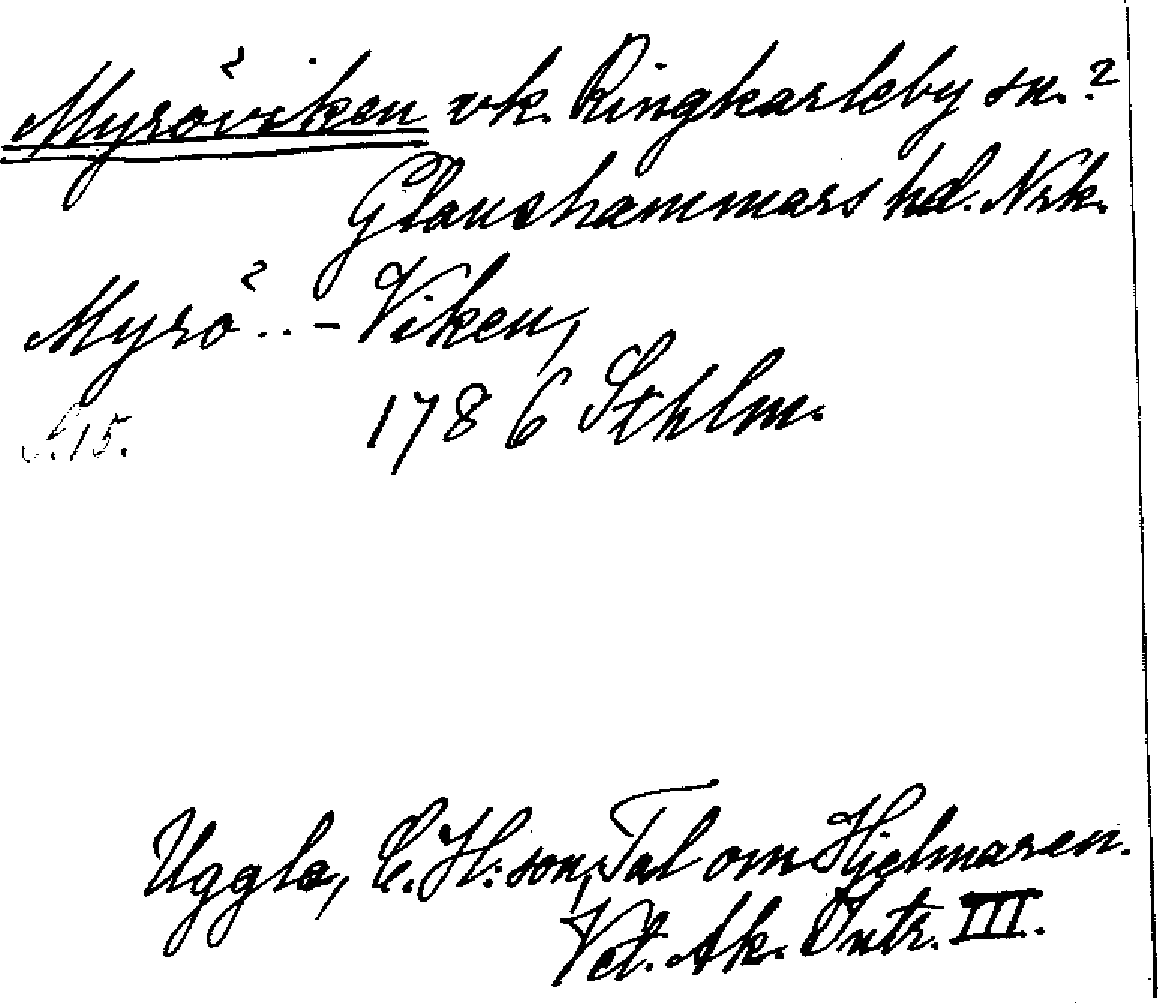 Myröviken vk. Ringkarleby sn.?
Glanshammars hd. Nrk.
Myrö..-Viken,
1786 Sthlm.
S. 15.
Uggla, C. H:son, Tal om Hjelmaren.
Vet. Ak. Intr. III.